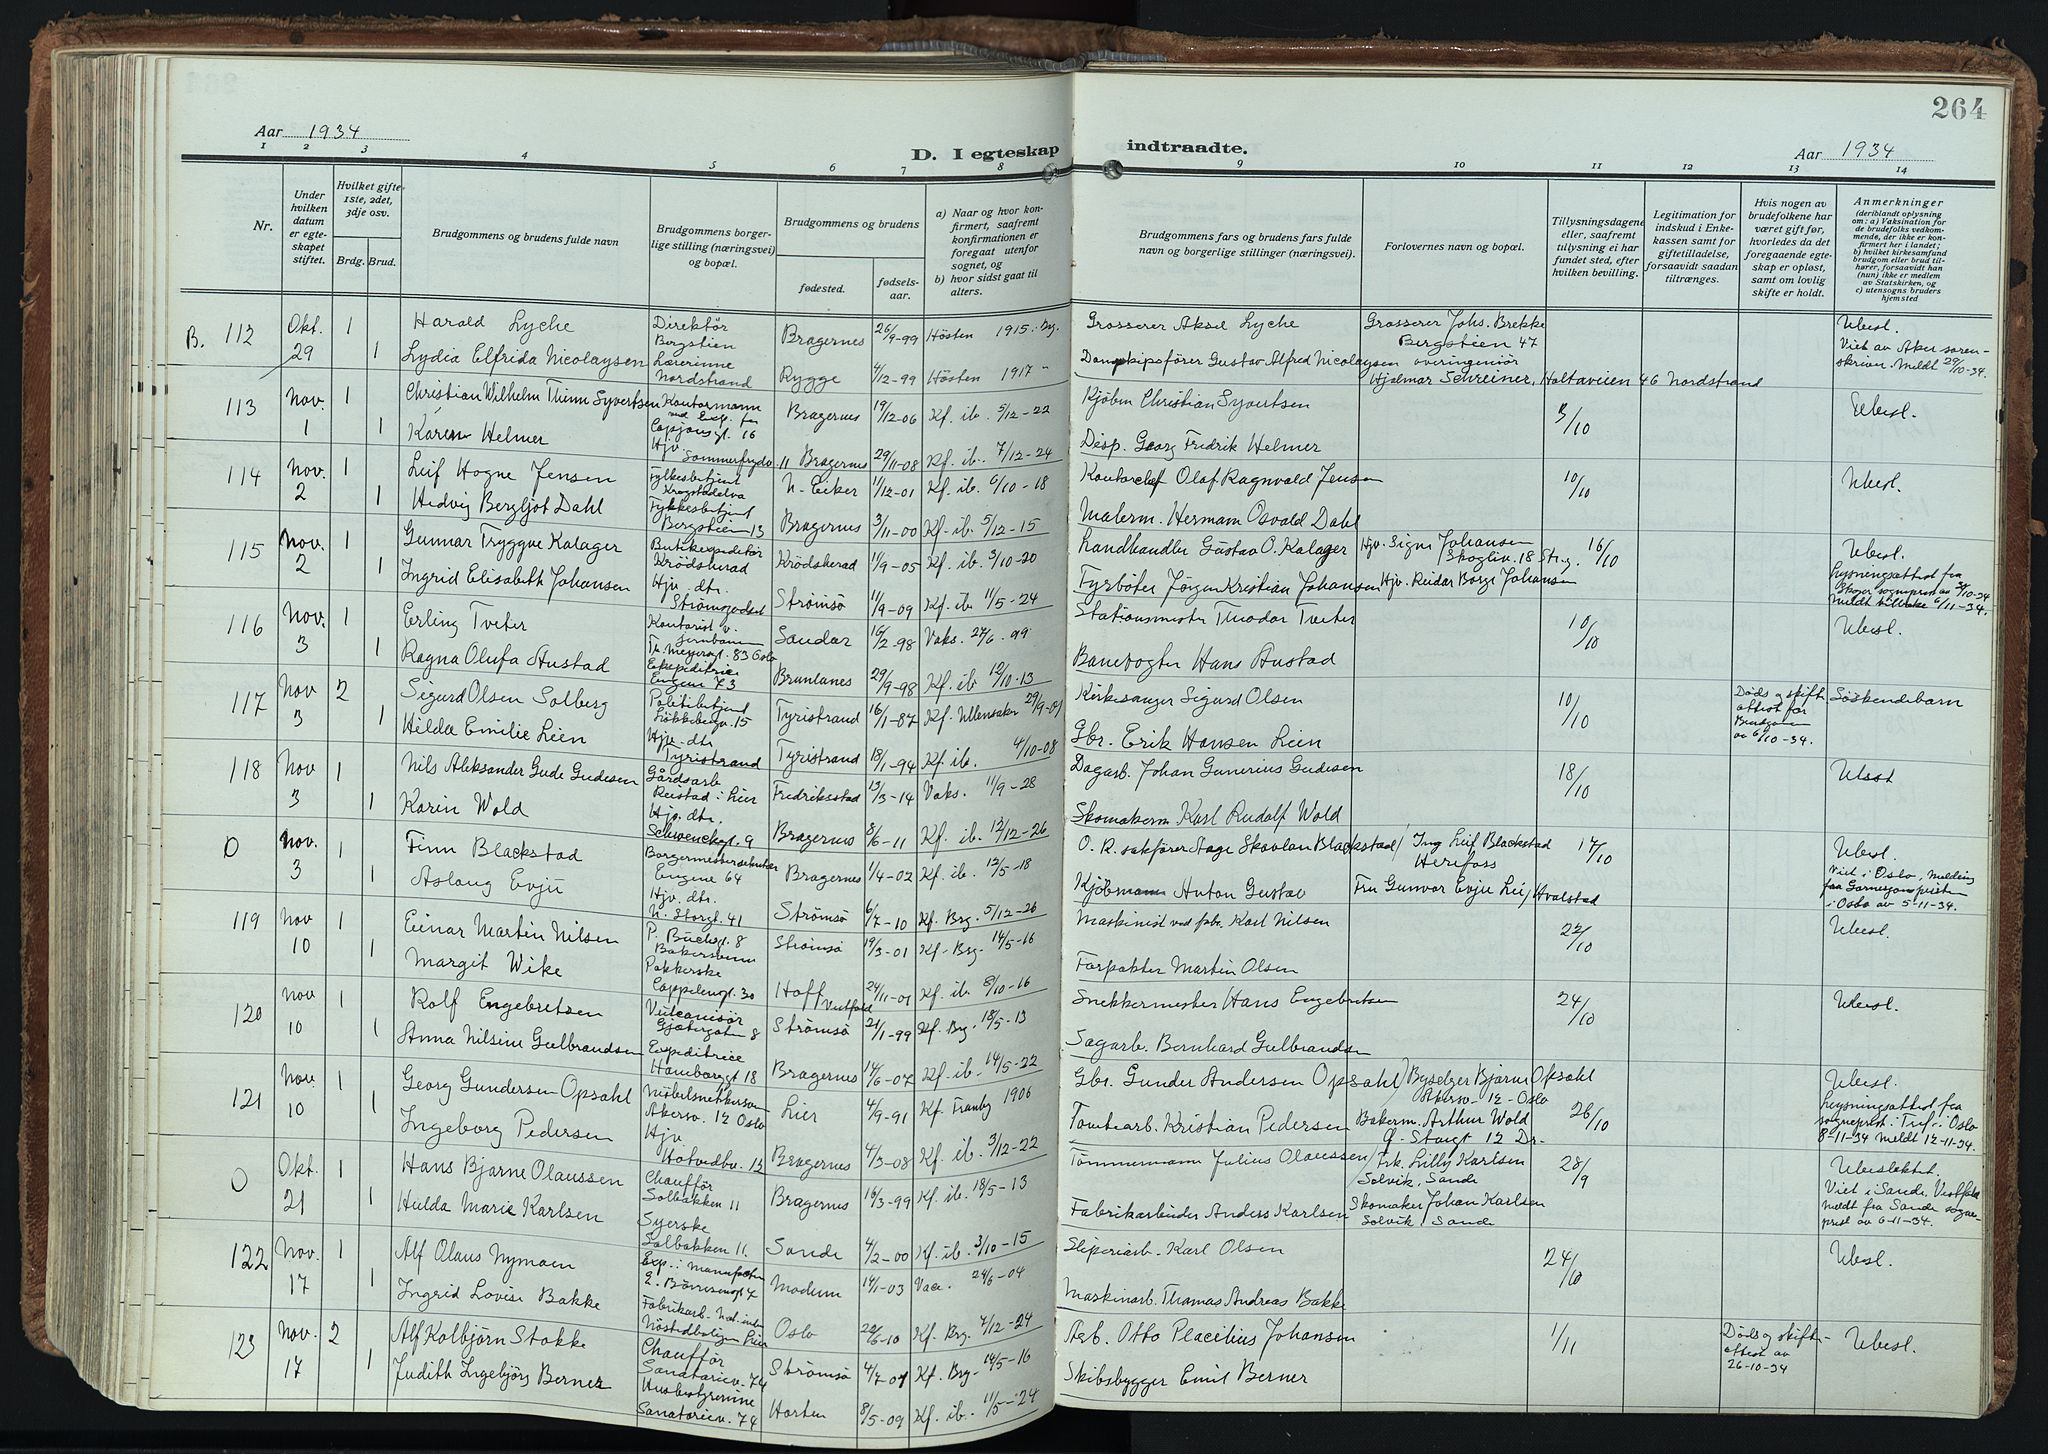 264
Aar 1934
D. I egteskap indtraadte.
Aar 1934
1 2 3 4 5 6 7 8 9 10 11 12 13 14
Nr.
Under hvilken datum er egteskapet stiftet.
Hvilket gifte- 1ste, 2det, 3dje osv.
Brdg. Brud.
Brudgommens og brudens fulde navn
Brudgommens borgerlige stilling (næringsvei) og bopæl.
Brudgommens og brudens
fødested.
fødselsaar.
a) Naar og hvor konfirmert, saafremt konfirmationen er foregaat utenfor sognet, og
b) hvor sidst gaat til alters.
Brudgommens fars og brudens fars fulde navn og borgerlige stillinger (næringsvei).
Forlovernes navn og bopæl.
Tillysningsdagene eller, saafremt tillysning ei har fundet sted, efter hvilken bevilling.
Legitimation for indskud i Enkekassen samt for giftetilladelse, forsaavidt saadan tiltrænges.
Hvis nogen av brudefolkene har været gift før, hvorledes da det foregaaende egteskap er opløst, samt om lovlig skifte er holdt.
Anmerkninger
(deriblandt oplysning om: a) Vaksination for de brudefolks vedkommende, der ikke er konfirmert her i landet; b) hvilket kirkesamfund brudgom eller brud tilhører, forsaavidt han (hun) ikke er medlem av Statskirken, og c) utensogns bruders hjemsted
B. 112 Okt. 29 1 Harald Lyche Direktør Bergstien Bragernes 26/9-99 Hösten 1915. Grosserer Aksel Lyche Grosserer Johs. Brekke Bergstien 47 Ubesl. Viet av Aker sorenskriver. Meldt 29/10-34.
1 Lydia Elfrida Nicolaysen Lærerinne Nordstrand Rygge 4/12-99 Hösten 1917 Dampskipsfører Gustav Alfred Nicolaysen overingeniør Hjalmar Schreiner, Holtaveien 46 Nordstrand
113 Nov. 1 1 Christian Wilhelm Thinn Syvertsen Kontormann Bragernes 19/12-06 Kf. ib. 5/12-22 Kjöbm Christian Syvertsen 3/10 Ubesl.
1 Karen Helmer Hjv. Sommerfrydv 11 Bragernes 29/11-08 Kf. ib. 7/12-24 Disp. Georg Fredrik Helmer
114 Nov. 2 1 Leif Hogne Jensen Fylkesbetjent Krogstadelva N. Eiker 11/12-01 Kf. ib. 6/10-18 Kontorchef Olaf Ragnvald Jensen 10/10 Ubesl.
1 Hedvig Bergljot Dahl Fylkesbetjent Bergstien 13 Bragernes 3/11-00 Kf. ib. 5/12-15 Malerm. Hermann Osvald Dahl
115 Nov. 2 1 Gunnar Tryggve Kalager Butikexpeditør Krödsherad Krödsherad 11/9-05 Kf. ib. 3/10-20 Landhandler Gustav O. Kalager Hjv. Signe Johansen Skogliv. 18 Str.g. 16/10 Ubesl. Lysningsattest fra
1 Ingrid Elisabeth Johansen Hjv. dtr. Strömsgodset Strömsö 11/9-09 Kf. ib. 11/5-24 Fyrböter Jørgen Kristian Johansen Hjv. Reidar Borge Johansen Skoger sogneprest av 3/10-34 Meldt tilbake 6/11-34.
116 Nov. 3 1 Erling Tveter Kontorist v. jernbanen Th. Meyersgt. 83 Oslo Sandar 16/2-98 Vaks. 27/6. 99 Stationsmester Theodor Tveter 10/10 Ubesl.
1 Ragna Olufa Austad Ekspeditrice Engene 73 Brunlanes 29/9-98 Kf. ib 12/10-13 Banevogter Hans Austad
117 Nov 3 2 Sigurd Olsen Solberg Politibetjent Løkkebergv. 15 Tyristrand 16/1-87 Kf. Ullensaker 29/9-01 Kirkesanger Sigurd Olsen 10/10 Døds og skifteattest for Brudgom av 6/10-34. Söskendebarn
1 Hilda Emilie Lien Hjv. dtr. Tyristrand Tyristrand 18/1-94 Kf. ib. 4/10-08 Gbr. Erik Hansen Lien
118 Nov 3 1 Nils Aleksander Gude Gudesen Gårdsarb Reistad i Lier Fredriksstad 13/3-14 Vaks. 11/9-28 Dagarb. Johan Gunerius Gudesen 18/10 Ubesl
1 Karin Wold Hjv. dtr. Schwenckegt. 9 Bragernes 8/6-11 Kf. ib. 12/12-26 Skomakerm Karl Rudolf Wold
O Nov. 3 1 Finn Blackstad Engene 64 Bragernes 1/4-02 Kf. ib. 12/5-18 O. R. sakfører Aage Skavlan Blackstad Ing Leif Blackstad Herefoss 17/10 Ubesl.
1 Aslaug Evju Hjv. dtr. N. Storgt. 41 Strömsö 6/7-10 Kf. Brg. 5/12-26 Kjöbmann Anton Gustav Fru Gunvor Evju Lie, Hvalstad Viet i Oslo, melding fra Garnisonsprest i Oslo av 5-11-34.
119 Nov 10 1 Einar Martin Nilsen P. Buchsgt. 8 Strömsö 19/3-01 Kf. Brg. 14/5-16 Maskinist ved fabr. Karl Nilsen 22/10 Ubesl.
1 Margit Wike Pakkerske Cappelensgt. 30 Hoff Vestfold 24/11-01 Kf. ib. 8/10-16 Forpakter Martin Olsen
120 Nov 10 1 Rolf Engebretsen Vulcanisør Gjetergaten 8 Strömsö 21/1-99 Kf. Brg. 18/5-13 Snekkermester Hans Engebretsen 24/10 Ubesl.
1 Anna Nilsine Gulbrandsen Expeditrice Hamborggt 18 Bragernes 14/6-07 Kf. ib. 14/5-22 Sagarb. Bernhard Gulbrandsen
121 Nov. 10 1 Georg Gundersen Opsahl Möbelsnekkersvenn Akersv. 12 Oslo Lier 4/9-91 Kf. Tranby 1906 Gbr. Gunder Andersen Opsahl Byselger Bjarne Opsahl Akersv. 12 - Oslo 26/10 Ubesl. Lysningsattest fra
1 Ingeborg Pedersen Hjv. Hotvedtv. 13 Bragernes 4/3-08 Kf. ib. 3/12-22 Tomtearb. Kristian Pedersen Bakerm. Arthur Wold Ö. Storgt 12 Dr. sogneprest i Tref. i Oslo 8-11-34 Meldt 12-11-34.
O Okt. 21 1 Hans Bjarne Olaussen Chauffør Solbakken 11 Bragernes 16/3-99 Kf. ib. 18/5-13 Tömmermann Julius Olaussen Frk. Lilly Karlsen Selvik, Sande 28/9 Ubeslektet.
1 Hulda Marie Karlsen Syerske Solbakken 11. Sande 4/2-00 Kf. ib. 3/10-15 Fabrikarbeider Anders Karlsen Skomaker Johan Karlsen Selvik, Sande Viet i Sande Vestfold meldt fra Sande sogneprest av 6-11-34.
122 Nov. 17 1 Alf Olaus Nymoen Exp. i manufaktur Modum 14/1-03 Vacc. 24/6-04 Sliperiarb. Karl Olsen 24/10 Ubesl.
1 Ingrid Lovise Bakke Fabrikarb. Nöstedboligen Lier Oslo 22/6-10 Kf. Brg. 7/12-24 Maskinarb. Thomas Andreas Bakke
123 Nov. 17 2 Alf Kolbjörn Stokke Chauffør Sanatoriev. 74 Strömsö 4/7-01 Kf. Brg. 14/5-16 Arb. Otto Placelius Johansen 1/11 Døds og skifteattest av 26-10-34 Ubesl.
1 Judith Ingebjörg Berner Husbestyrerinne Sanatoriev. 74 Horten 8/5-09 Kf. ib. 11/5-24 Skibsbygger Emil Berner